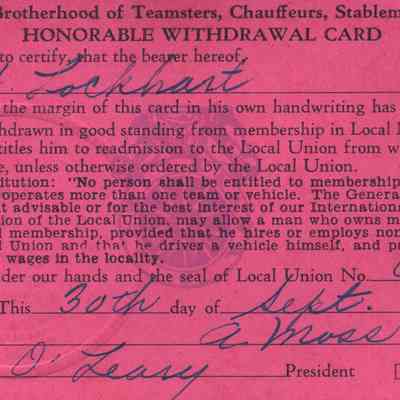 Brotherhood of Teamsters, Chauffeurs, Stablem
HONORABLE WITHDRAWAL CARD
to certify, that the bearer hereof,
Lockhart
the margin of this card in his own handwriting has
hdrawn in good standing from membership in Local
titles him to readmission to the Local Union from w
e, unless otherwise ordered by the Local Union.
itution: "No person shall be entitled to membership
operates more than one team or vehicle. The General
t advisable or for the best interest of our Internation
ion of the Local Union, may allow a man who owns m
l membership, provided that he hires or employs non
l Union and that he drives a vehicle himself, and p
wages in the locality.
der our hands and the seal of Local Union No.
This 30th day of Sept.
A. Moss
O'Leary President